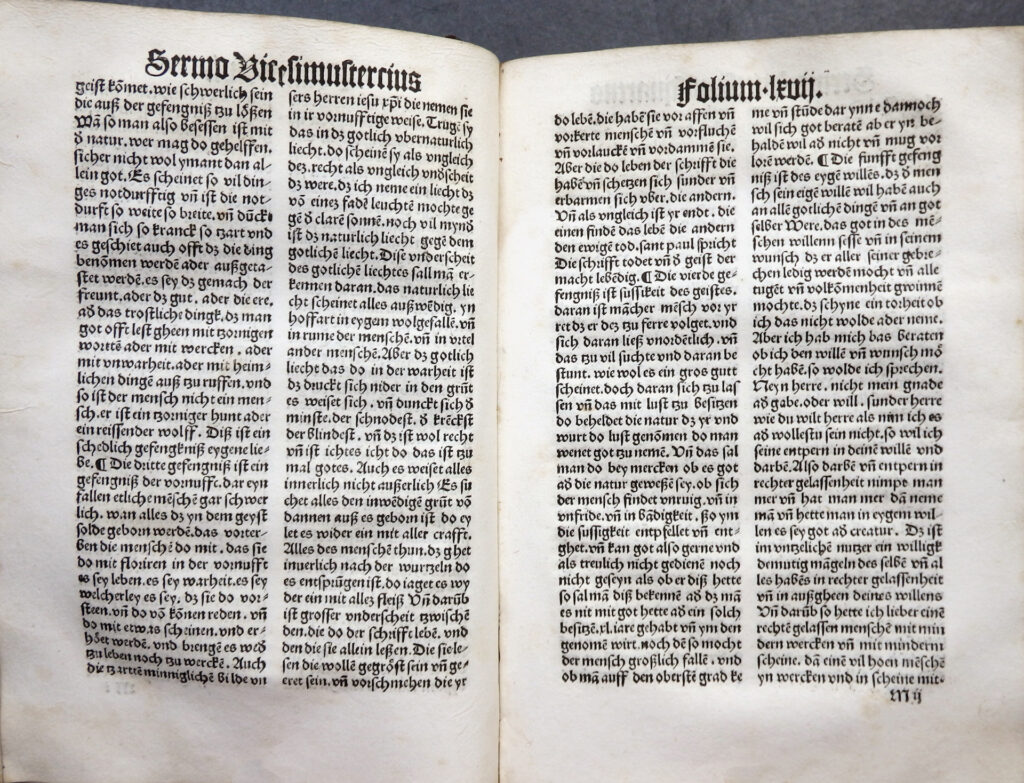 Sermo Vicesimustercius
geist kõmet. wie schwerlich sein
die auß der gefengniß tzu lößen
Wã so man also besessen ist mit
d̕ natur. wer mag do gehelffen.
sicher nicht wol ymant dan al-
lein got. Es scheinet so vil din-
ges notdurfftig vñ ist die not-
durft so weite so breite. vñ dück
man sich so kranck so tzart vnd
es geschiet auch offt dz die ding
benõmen werdẽ ader außgeta-
stet werdẽ. es sey dz gemach der
freunt. ader dz gut. ader die ere.
ad̕ das trostliche dingk. dz man
got offt lest gheen mit tzornigen
wortẽ ader mit wercken. ader
mit vnwarheit. ader mit heim-
lichen dingẽ auß tzu ruffen. vnd
so ist der mensch nicht ein men-
sch. er ist ein tzorniger hunt ader
ein reissender wolff. Diß ist ein
schedlich gefengkniß eygene lie-
be. ¶ Die dritte gefengniß ist ein
gefengniß der vornufft. dar eyn
fallen etliche mẽschẽ gar schwer
lich. wan alles dz yn dem geyst
solde geborn werdẽ. das vorter-
ben die menschẽ do mit. das sie
do mit floriren in der vornufft
es sey leben. es sey warheit. es sey
welcherley es sey. dz sie do vor-
steen. vñ do võ kõnen reden. vñ
do mit etwas scheinen. vnd er-
hõet werdẽ. vnd brengẽ es wed̕
tzu leben noch tzu werckẽ. Auch
die tzarten minniglichẽ bilde vn
sers herren iesu xp̃i die nemen sie
in ir vornufftige weise. Trugẽ sy
das in dz gotlich vbernaturlich
liecht. do scheinẽ sy als vngleich
dez. recht als vngleich vñdscheit
dz were. dz ich neme ein liecht dz
võ einez fadẽ leuchtẽ mochte ge
gẽ d̕ clarẽ sonnẽ. noch vil mynd̕
ist dz naturlich liecht gegẽ dem
gotlichẽ liecht. Dise vnderscheit
des gotlichẽ liechtes sall mã er-
kennen daran. das naturlich lie
cht scheinet alles außwẽdig. yn
hoffart in eygem wolgefallẽ. vñ
in rume der menschẽ. vñ in vrtel
ander menschẽ. Aber dz gotlich
liecht das do in der warheit ist
dz druckt sich nider in den grũt
es weiset sich. vñ dunckt sich d̕
minste. der schnodest. d̕ krẽckst
der blindest. vñ dz ist wol recht
vñ ist ichtes icht do das ist tzu
mal gotes. Auch es weiset alles
innerlich nicht außerlich Es su
chet alles den inwẽdigẽ grũt võ
dannen auß es geborn ist do ey
let es wider ein mit aller crafft.
Alles des menschẽ thun. dz ghet
inuerlich nach der wurtzeln do
es entsprũgen ist. do iaget es wy
der ein mit allez fleiß Vñ darũb
ist grosser vnderscheit tzwischẽ
den. die do der schrifft lebẽ. vnd
den die sie allein leßen. Die sie le-
sen die wollẽ gegrõst sein vñ ge-
eret sein. vñ vorschmehen die yr
Folium · lxvij.
do lebẽ. die habẽ sie vor affen vñ
vorkerte menschẽ vñ vorfluchẽ
vñ vorlauckẽ vñ vordammẽ sie.
Aber die do leben der schrifft die
habẽ vñ schetzen sich sunder vñ
erbarmen sich vber. die andern.
Vñ als vngleich ist yr endt. die
einen findẽ das lebẽ die andern
den ewigẽ tod. sant paul spricht
Die schrifft todet vñ d̕ geist der
macht lebẽdig. ¶ Die vierde ge-
fengniß ist sussikeit des geistes.
daran ist mãcher mẽsch vor yr
ret dz er dez tzu ferre volget. vnd
sich daran ließ vnordẽtlich. vñ
das tzu vil suchte vnd daran be
stunt. wie wol es ein gros gutt
scheinet. doch daran sich tzu las
sen vñ das mit lust tzu besitzen
do beheldet die natur dz yr vnd
wurt do lust genõmen do man
wenet got tzu nemẽ. Vñ das sal
man do bey mercken ob es got
ad̕ die natur geweßẽ sey. ob sich
der mensch findet vnruig. vñ in
vnfride. vñ in bãdigkeit. ßo ym
die sussigkeit entpfellet vñ ent-
ghet. vñ kan got also gerne vnd
als treulich nicht gedienẽ noch
nicht geseyn als ob er diß hette
so sal mã diß bekennẽ ad̕ dz mã
es nit mit got hette ad̕ ein solch
besitzẽ. xl. iare gehabt vñ ym den
genomẽ wirt. noch dẽ so mocht
der mensch großlich fallẽ. vnd
ob mã auff den oberstẽ grad ke
me vñ stũde dar ynne dannoch
wil sich got beratẽ ab er yn be-
haldẽ wil ad̕ nicht vñ mug vor
lorẽ werdẽ. ¶ Die funfft gefeng
niß ist des eygẽ willẽs. dz d̕ men
sch sein eigẽ willẽ wil habẽ auch
an allẽ gotlichẽ dingẽ vñ an got
selber Were. das got in des mẽ-
schen willenn sesse vñ in seinem
wunsch dz er aller seiner gebre-
chen ledig werdẽ mocht vñ alle
tugẽt vñ volkõmenheit gwinnẽ
mochte. dz schyne ein torheit ob
ich das nicht wolde ader neme.
Aber ich hab mich bas beraten
ob ich den willẽ vñ wunsch mõ
cht habẽ. so wolde ich sprechen.
Neyn herre. nicht mein gnade
ad̕ gabe. oder will. sunder herre
wie du wilt herre als nim ich es
ad̕ wollestu sein nicht. so wil ich
seine entpern in deinẽ wille vnd
darbẽ. Also darbẽ vñ entpern in
rechter gelassenheit nimpt man
mer vñ hat man mer dã neme
mã vñ hette man in eygem wil-
len es sey got ad̕ creatur. Dz ist
im vntzelichẽ nutzer ein willigk
demutig mãgeln des selbẽ vñ al
les habẽs in rechter gelassenheit
vñ in außgheen deines willens
Vñ darũb so hette ich lieber einẽ
rechtẽ gelassen menschẽ mit min
dern wercken vñ mit mindernn
scheine. dã einẽ vil hoen mẽschẽ
yn wercken vnd in scheine mit-
M ij